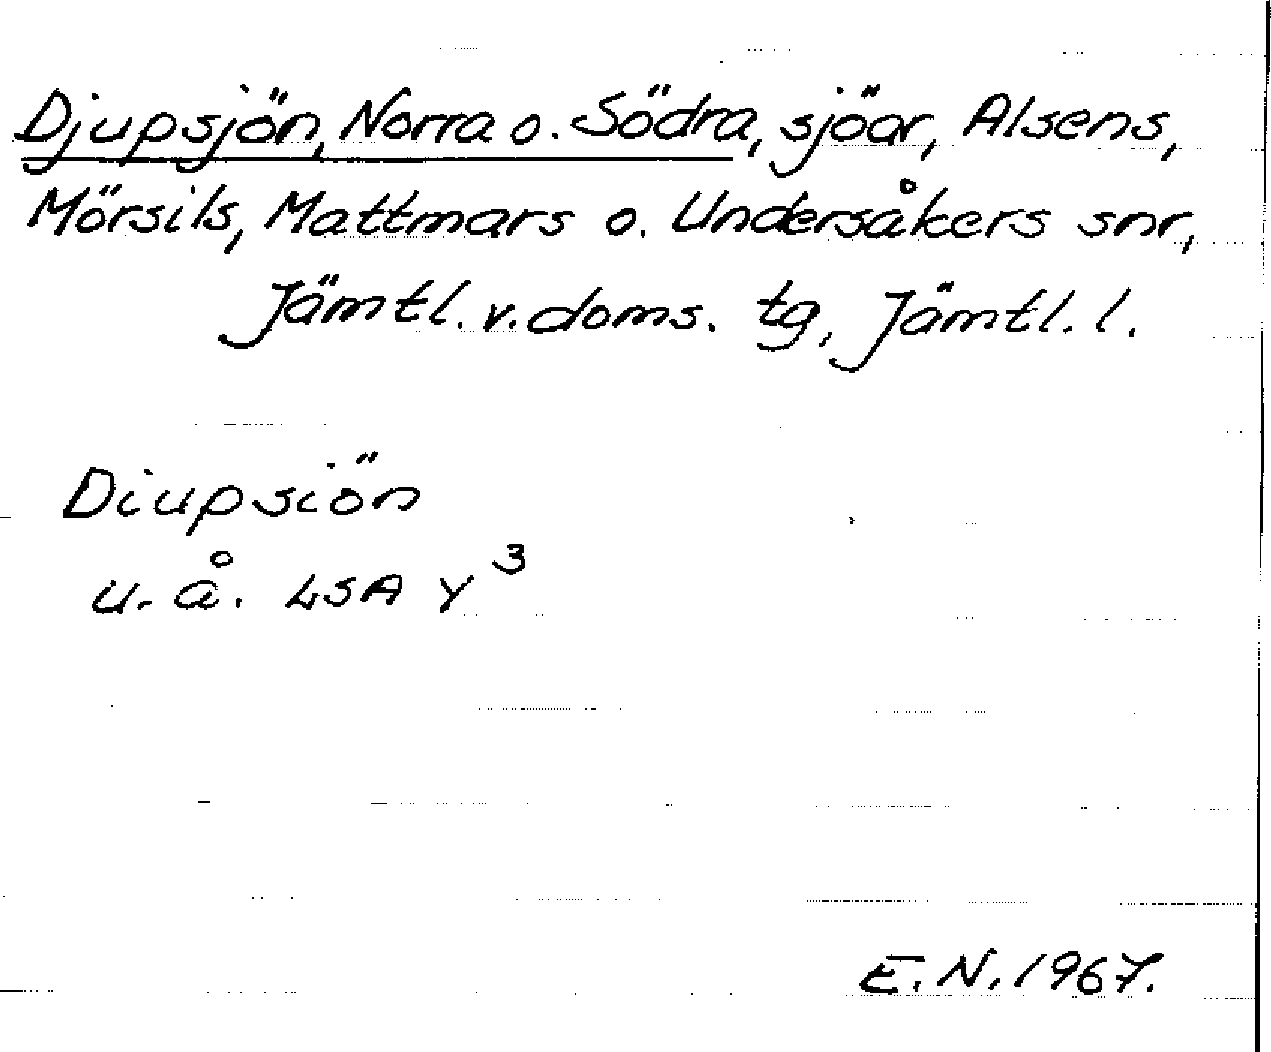 Djupsjön, Norra o. Södra, sjöar, Alsens,
Mörsils, Mattmars o. Undersåkers snr,
Jämtl. v. doms. tg, Jämtl. l.
Diupsiön
u. å. LSA Y 3
E. N. 1967.